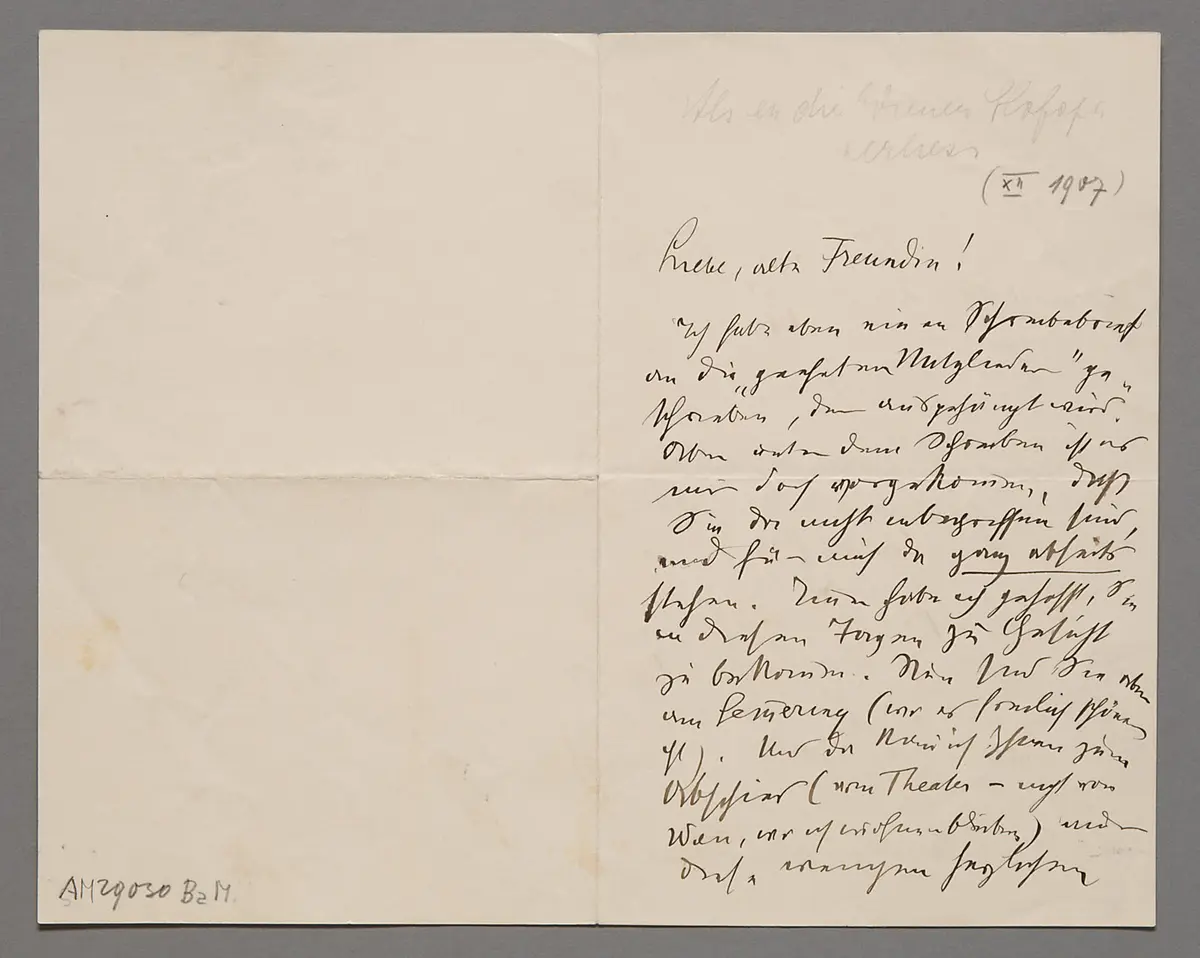 Als er die Wiener Hofoper
verliess
(XII 1907)
Liebe, alte Freundin!
Ich habe eben einen Schreibebrief
an die „geehrten Mitglieder" ge-
schrieben, der ausgehängt wird.
Aber unter dem Schreiben ist es
mir doch vorgekommen, daß
Sie da nicht inbegriffen sind,
und für mich da ganz abseits
stehen. Immer habe ich gehofft, Sie
in diesen Tagen zu Gesicht
zu bekommen. Nun sind Sie aber
am Semering (wo es freilich schöner
ist). Und da kann ich Ihnen zum
Abschied (vom Theater – nicht von
Wien, wo ich wohnen bleibe) nur
diese wenigen herzlichen
AM29030 BzM